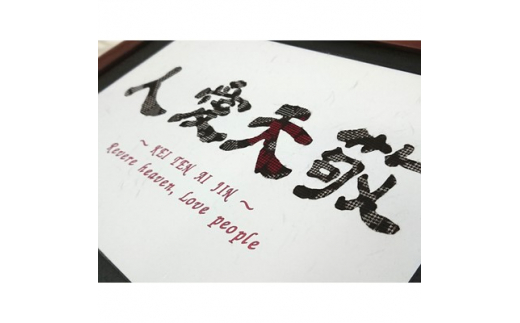 敬天愛人
～ KEI TEN AI JIN ～
Revere heaven, Love people